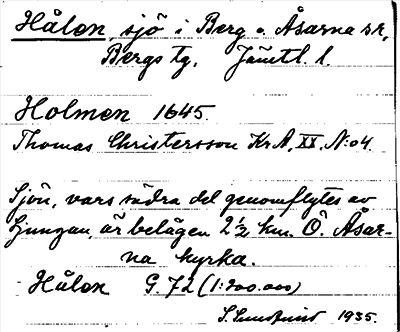 Hålen, sjö i Berg o. Åsarna sk,
Bergs tg, Jämtl. l.
Holmen 1645.
Thomas Christersson Kr.A, XX. N:o 4.
Sjön, vars södra del genomflytes av
Ljungan, är belägen 2 1/2 km. Ö. Åsar-
na kyrka.
Hålen G. 72 (1:200.000)
S. Lundqvist 1935.